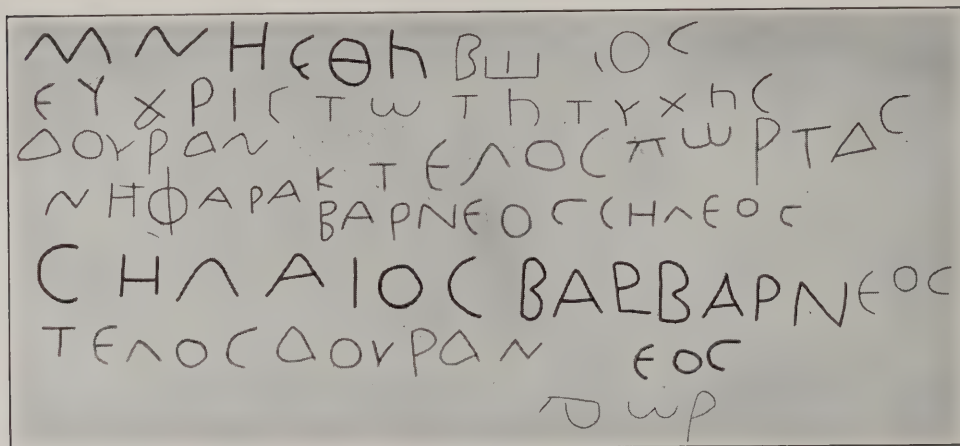 ΜΝΗϹΘΗ ΒШ ΙΟϹ
ЄΥΧΡΙϹΤω ΤΗ ΤΥΧΗϹ
ΔΟΥΡΑΝ ΤЄΛΟϹ ΠωΡΤΑϹ
ΝΗΦΑΡΑ Κ Τ
ΒΑΡΝЄΟϹ ϹΗΛЄΟϹ
ϹΗΛΑΙΟϹ ΒΑΡΒΑΡΝЄΟϹ
ΤЄΛΟϹ ΔΟΥΡΑΝ ЄΟϹ
ΠωΡ